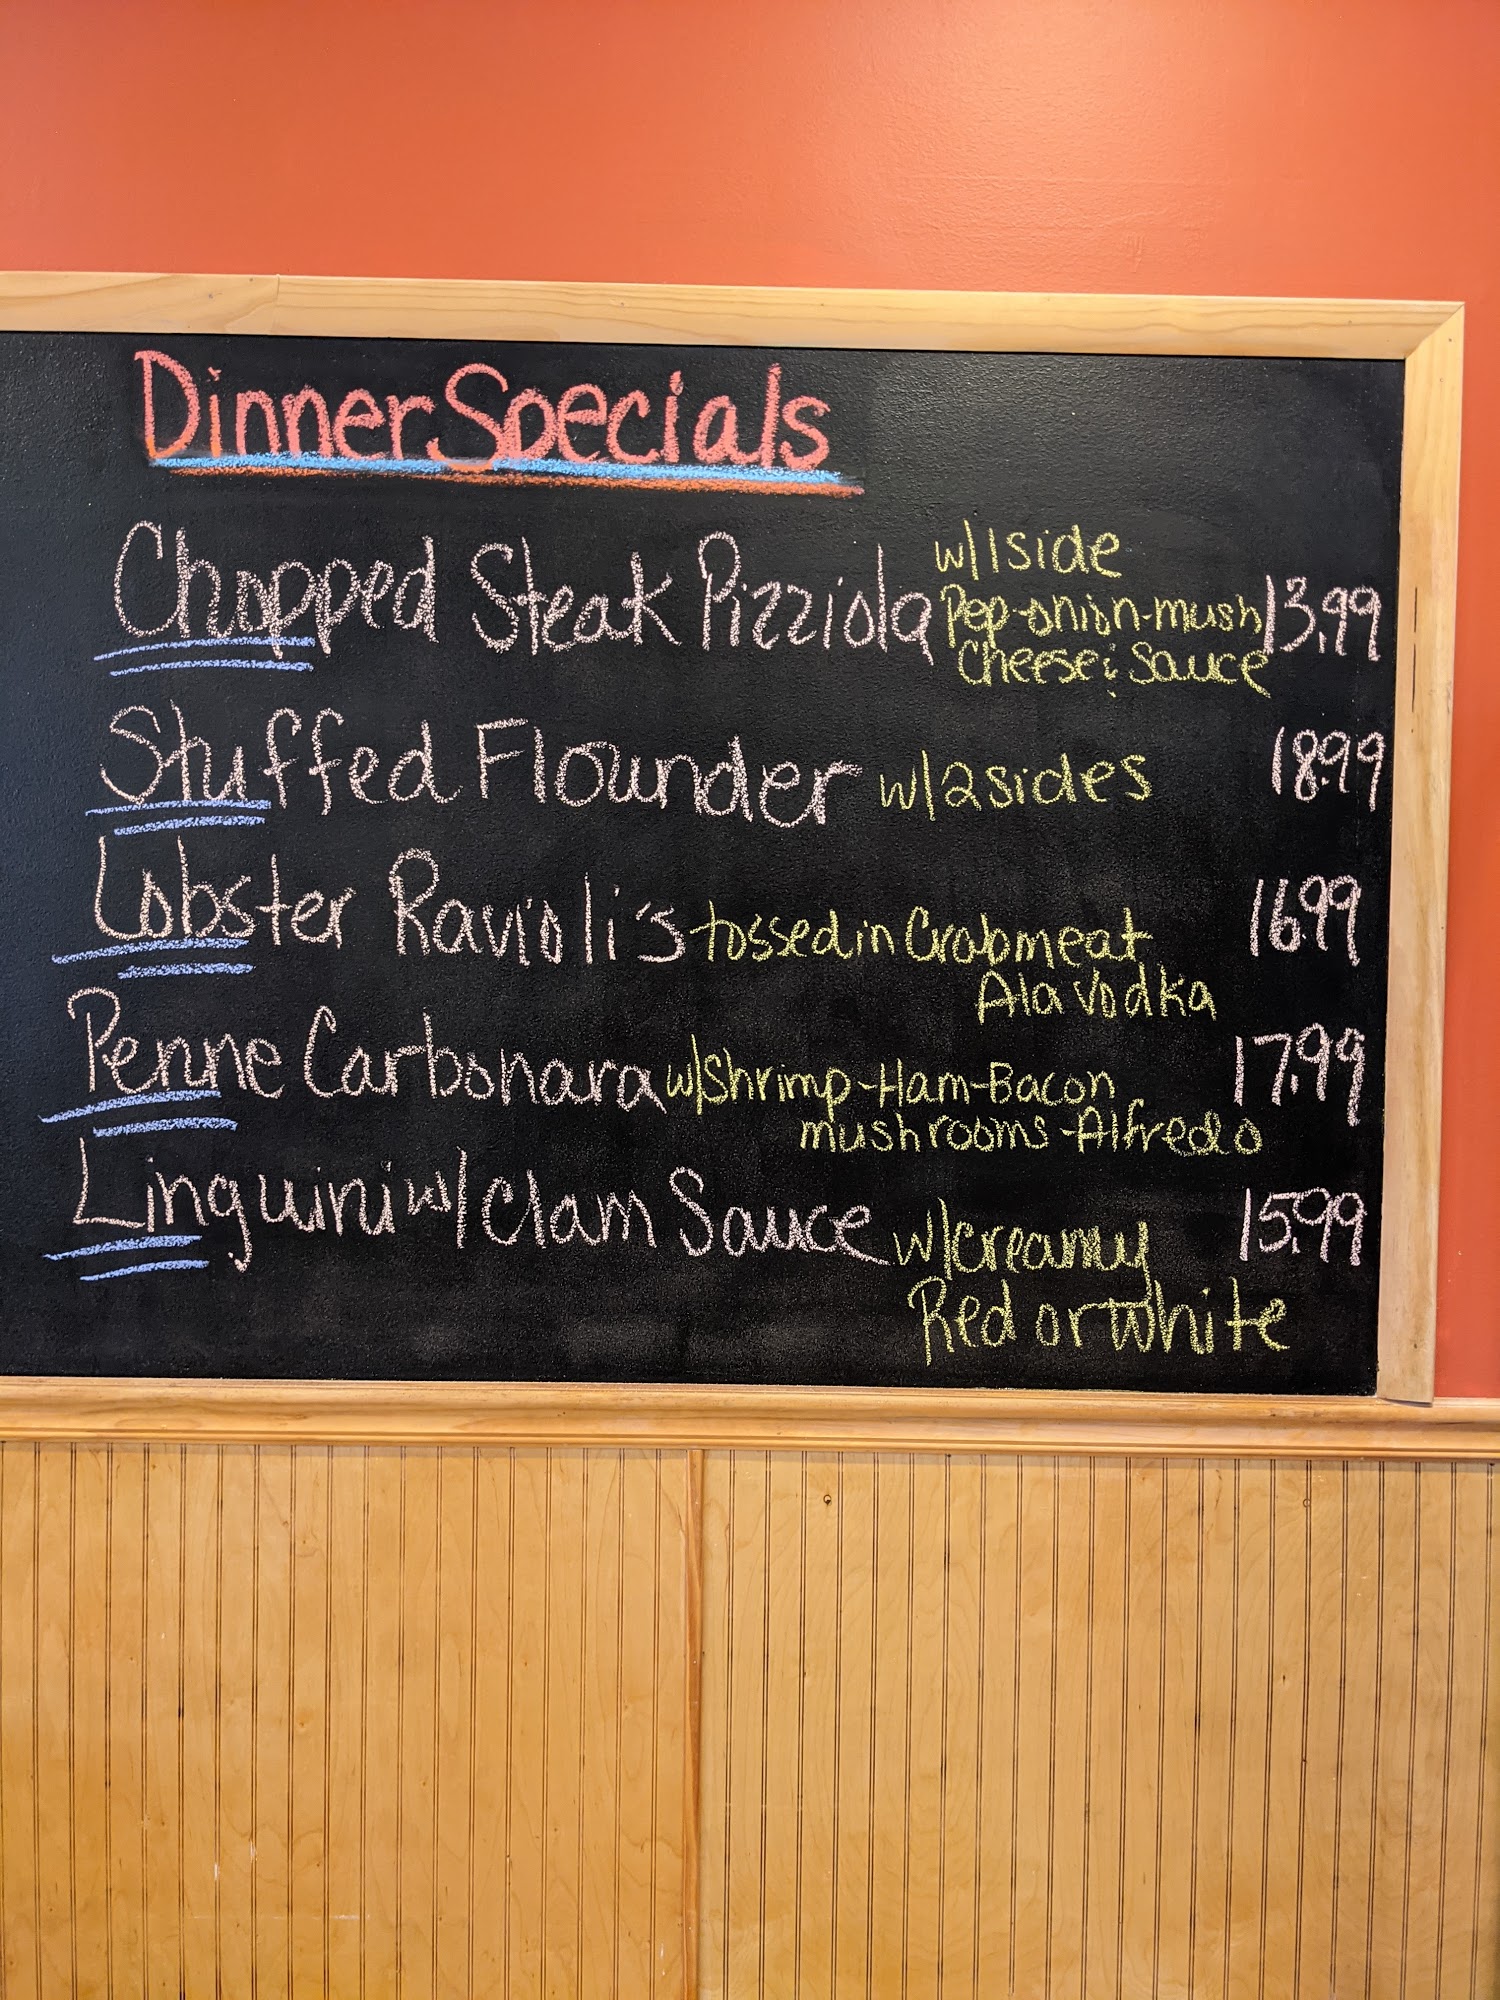 Dinner Specials
Chopped Steak Pizziola w/1 side
Pep-onion-mush 13.99
Cheese & Sauce
Stuffed Flounder w/2 sides 18.99
Lobster Ravioli's tossed in Crabmeat 16.99
Ala Vodka
Penne Carbonara w/Shrimp-Ham-Bacon 17.99
mushrooms-Alfredo
Linguini w/ Clam Sauce w/creamy 15.99
Red or White